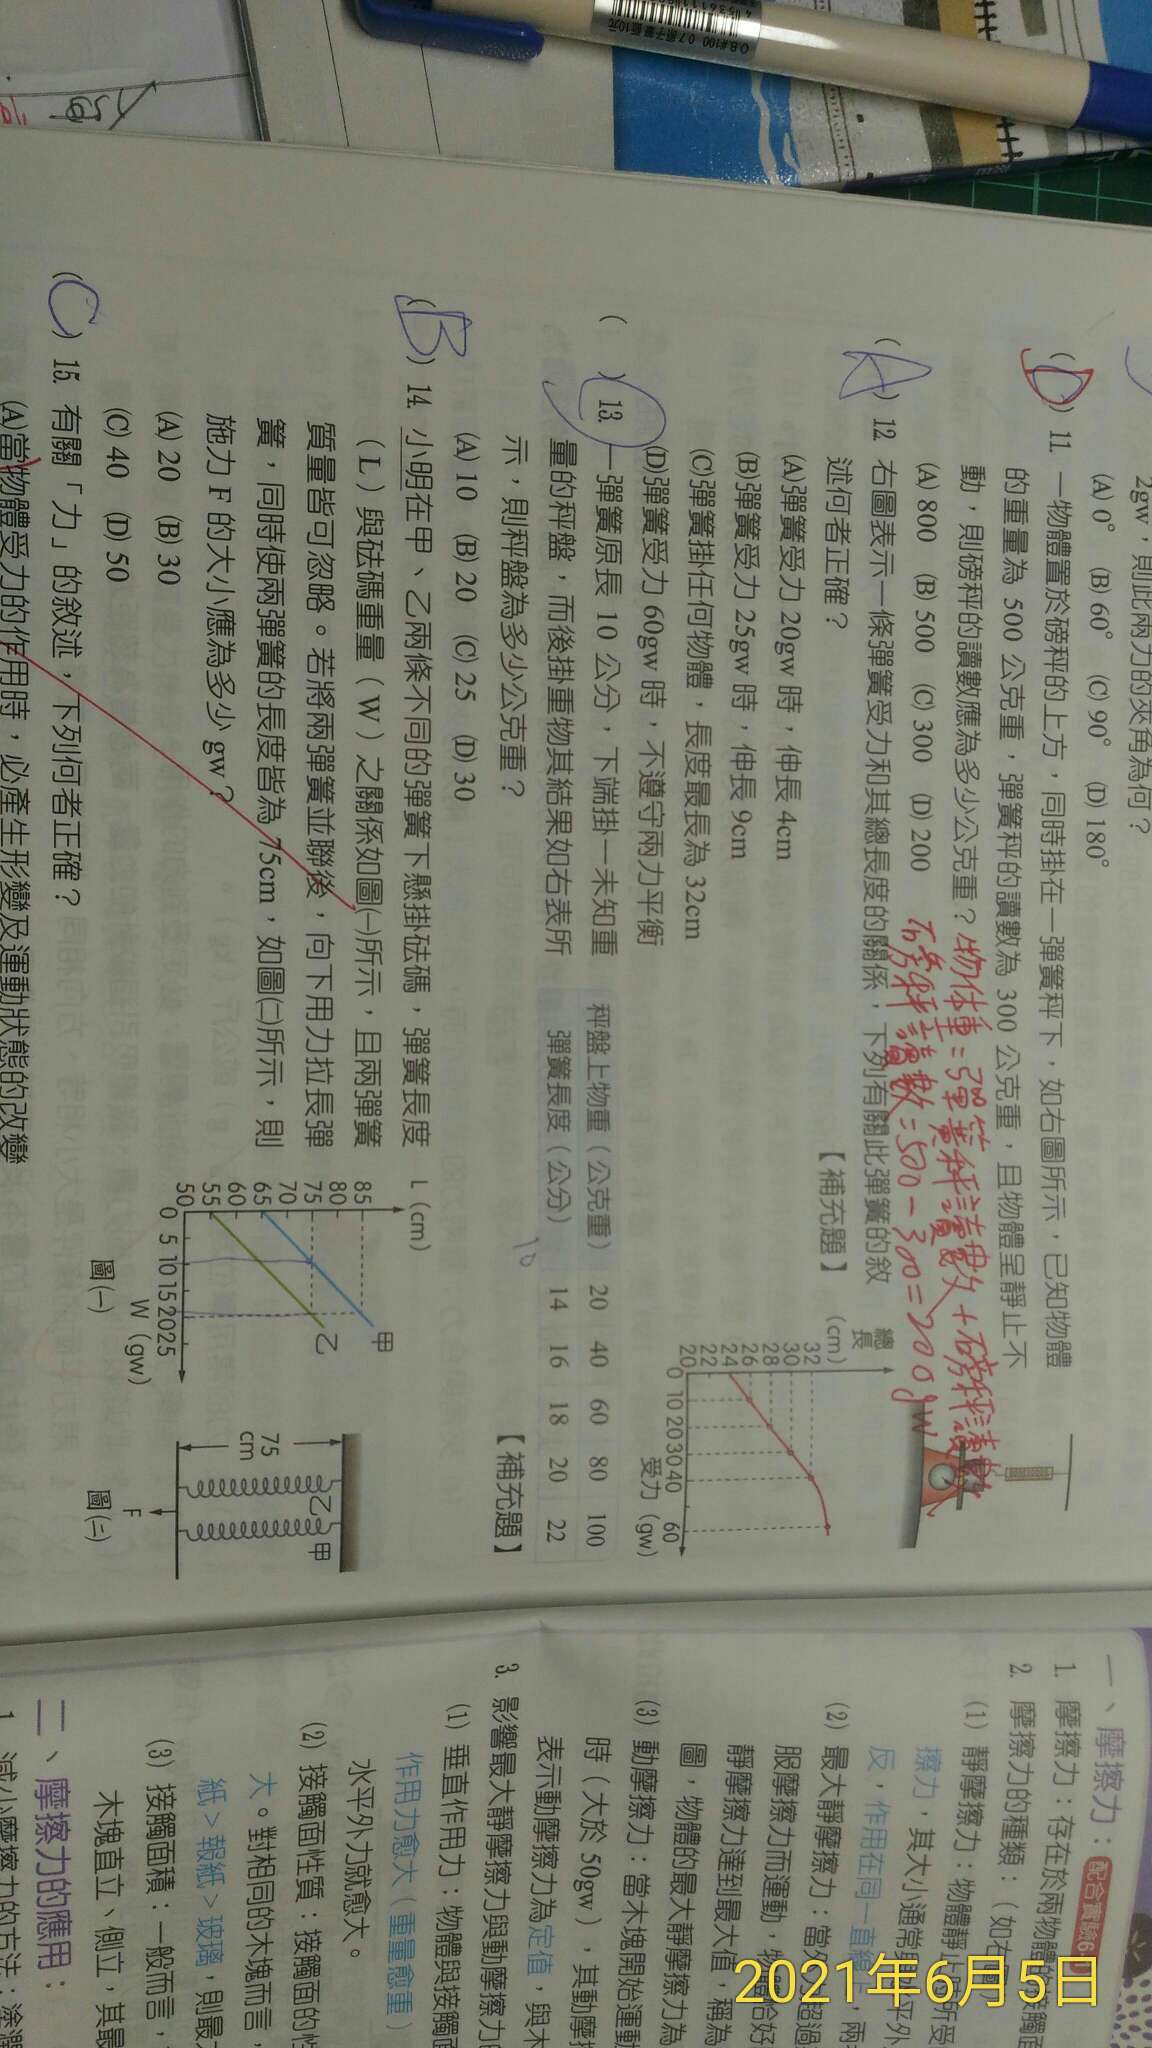 2gw，則此兩力的夾角為何？
(A) 0° (B) 60° (C) 90° (D) 180°
(D) 11. 一物體置於磅秤的上方，同時掛在一彈簧秤下，如右圖所示，已知物體
的重量為 500 公克重，彈簧秤的讀數為 300 公克重，且物體呈靜止不
動，則磅秤的讀數應為多少公克重？
物体重=彈簧秤讀數+磅秤讀數
(A) 800 (B) 500 (C) 300 (D) 200
磅秤讀數=500-300=200gw
(A) 12. 右圖表示一條彈簧受力和其總長度的關係，下列有關此彈簧的敘
述何者正確？ 【補充題】
(A)彈簧受力 20gw 時，伸長 4cm
(B)彈簧受力 25gw 時，伸長 9cm
(C)彈簧掛任何物體，長度最長為 32cm
(D)彈簧受力 60gw 時，不遵守兩力平衡
總長 (cm)
32
30
28
26
24
22
20
0 10 20 30 40 60
受力（gw）
( ) 13. 一彈簧原長 10 公分，下端掛一未知重
量的秤盤，而後掛重物其結果如右表所
示，則秤盤為多少公克重？
(A) 10 (B) 20 (C) 25 (D) 30
秤盤上物重（公克重） 20 40 60 80 100
彈簧長度（公分） 14 16 18 20 22
10
【補充題】
(B) 14. 小明在甲、乙兩條不同的彈簧下懸掛砝碼，彈簧長度
（L）與砝碼重量（W）之關係如圖㈠所示，且兩彈簧
質量皆可忽略。若將兩彈簧並聯後，向下用力拉長彈
簧，同時使兩彈簧的長度皆為 75cm，如圖㈡所示，則
施力 F 的大小應為多少 gw？
(A) 20 (B) 30
(C) 40 (D) 50
L（cm）
85
80
75
70
65
60
55
50
0 5 10 15 20 25
W（gw）
甲
乙
圖㈠
75
cm
乙
甲
F
圖㈡
(C) 15. 有關「力」的敘述，下列何者正確？
(A)當物體受力的作用時，必產生形變及運動狀態的改變
一、摩擦力：
配合實驗6
1. 摩擦力：存在於兩物體的接觸面
2. 摩擦力的種類：（如右圖
(1) 靜摩擦力：物體靜止時所受
擦力，其大小通常與水平外
反，作用在同一直線上，兩
(2) 最大靜摩擦力：當外力超過
服摩擦力而運動，物體恰好
靜摩擦力達到最大值，稱為
圖，物體的最大靜摩擦力為
(3) 動摩擦力：當木塊開始運動
時（大於 50gw），其動摩擦
表示動摩擦力為定值，與木
3. 影響最大靜摩擦力與動摩擦力的
(1) 垂直作用力：物體與接觸面
作用力愈大（重量愈重）
水平外力就愈大。
(2) 接觸面性質：接觸面的性
大。對相同的木塊而言，
紙＞報紙＞玻璃，則最大
(3) 接觸面積：一般而言，
木塊直立、側立，其最
二、摩擦力的應用：
1. 減小摩擦力的方法：塗潤
2021年6月5日